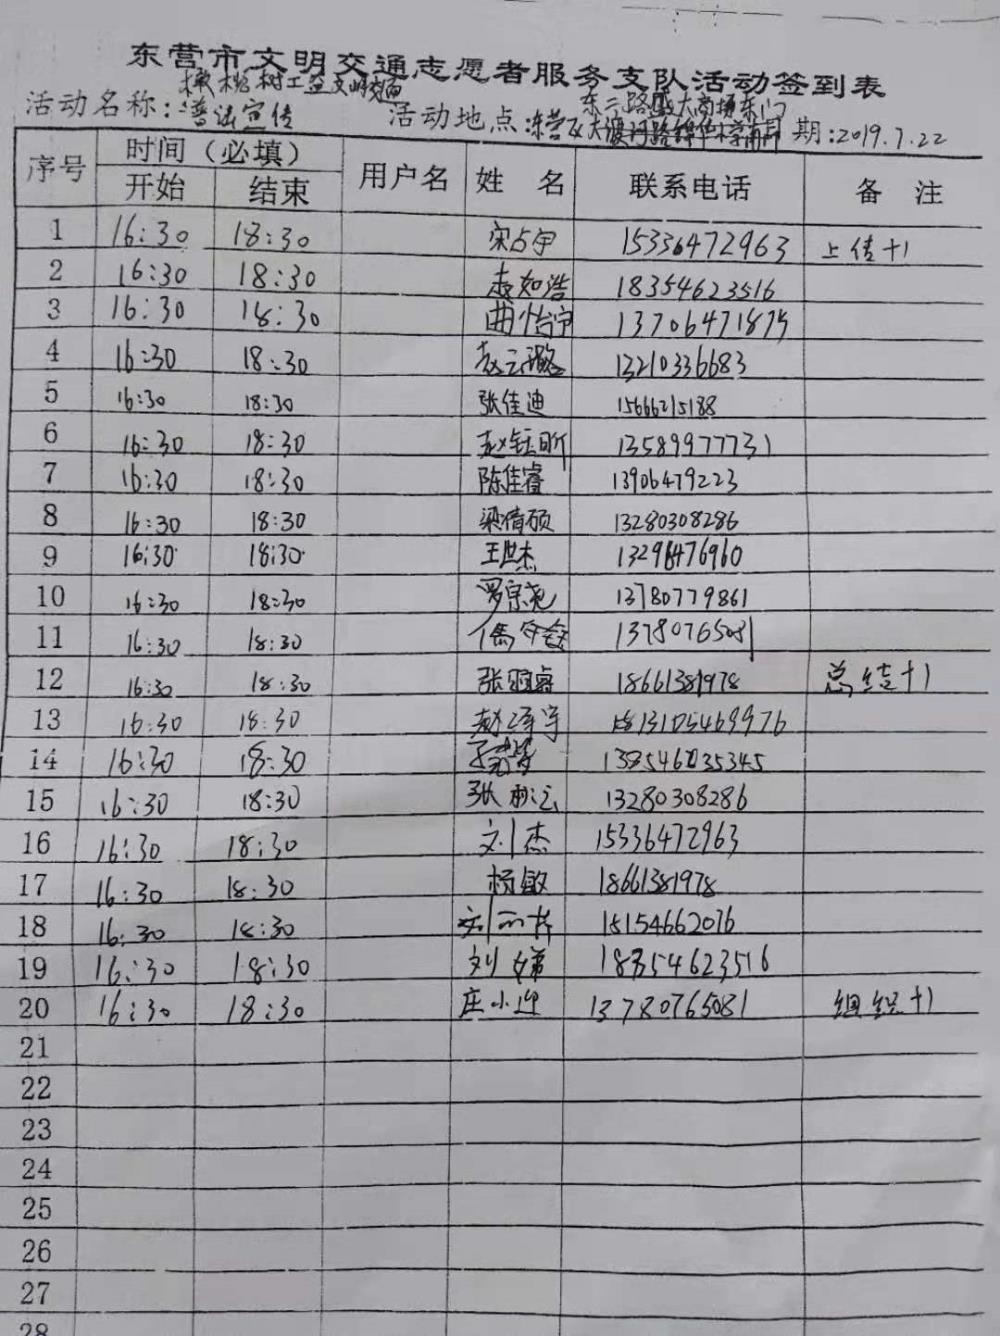 东营市文明交通志愿者服务支队活动签到表
橄榄树工益文明交通
活动名称：普法宣传 活动地点：东营 东二路 大商场东门 大渡河路 期：2019.7.22
序号 时间（必填） 用户名 姓 名 联系电话 备 注
开始 结束
1 16:30 18:30 宋占宇 15336472963 上传+1
2 16:30 18:30 袁如浩 18354623516
3 16:30 18:30 曲怡宁 13706471875
4 16:30 18:30 赵云璐 13210336683
5 16:30 18:30 张佳迪 15666215188
6 16:30 18:30 赵钰昕 13589977731
7 16:30 18:30 陈佳睿 13906479223
8 16:30 18:30 梁倩硕 13280308286
9 16:30 18:30 王世杰 13298476960
10 16:30 18:30 罗宗尧 13780779861
11 16:30 18:30 13780765081
12 16:30 18:30 张 睿 18661381978 总结+1
13 16:30 18:30 赵泽宇
14 16:30 18:30
15 16:30 18:30 张 13280308286
16 16:30 18:30 刘杰 15336472963
17 16:30 18:30 杨敏 18661381978
18 16:30 18:30 刘 15154662076
19 16:30 18:30 刘娣 18354623516
20 16:30 18:30 庄小迎 13780765081 组织+1
21
22
23
24
25
26
27
28